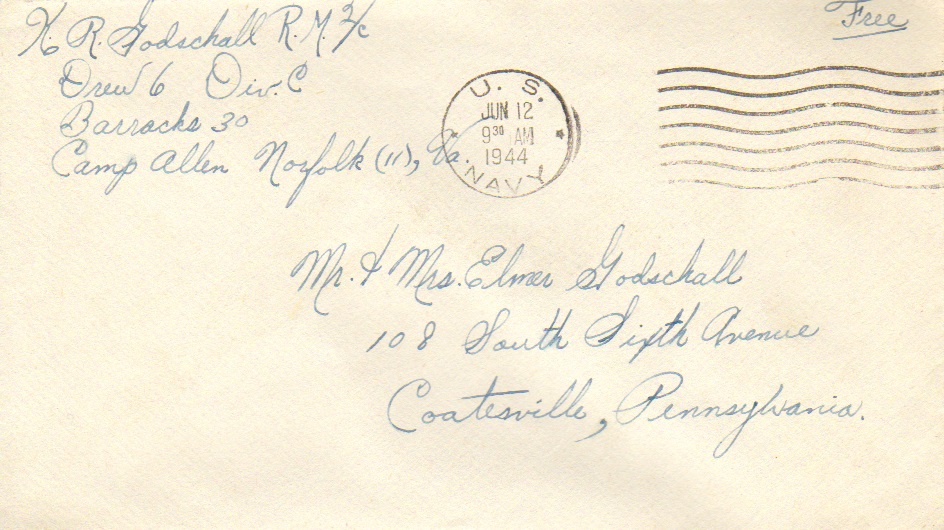 K. R. Godschall R.M. 2/c
Free
Drew 6 Div. C
Barracks 30
Camp Allen Norfolk (11), Va.
U. S.
JUN 12
9 30 AM
1944
NAVY
Mr. & Mrs. Elmer Godschall
108 South Sixth Avenue
Coatesville, Pennsylvania.